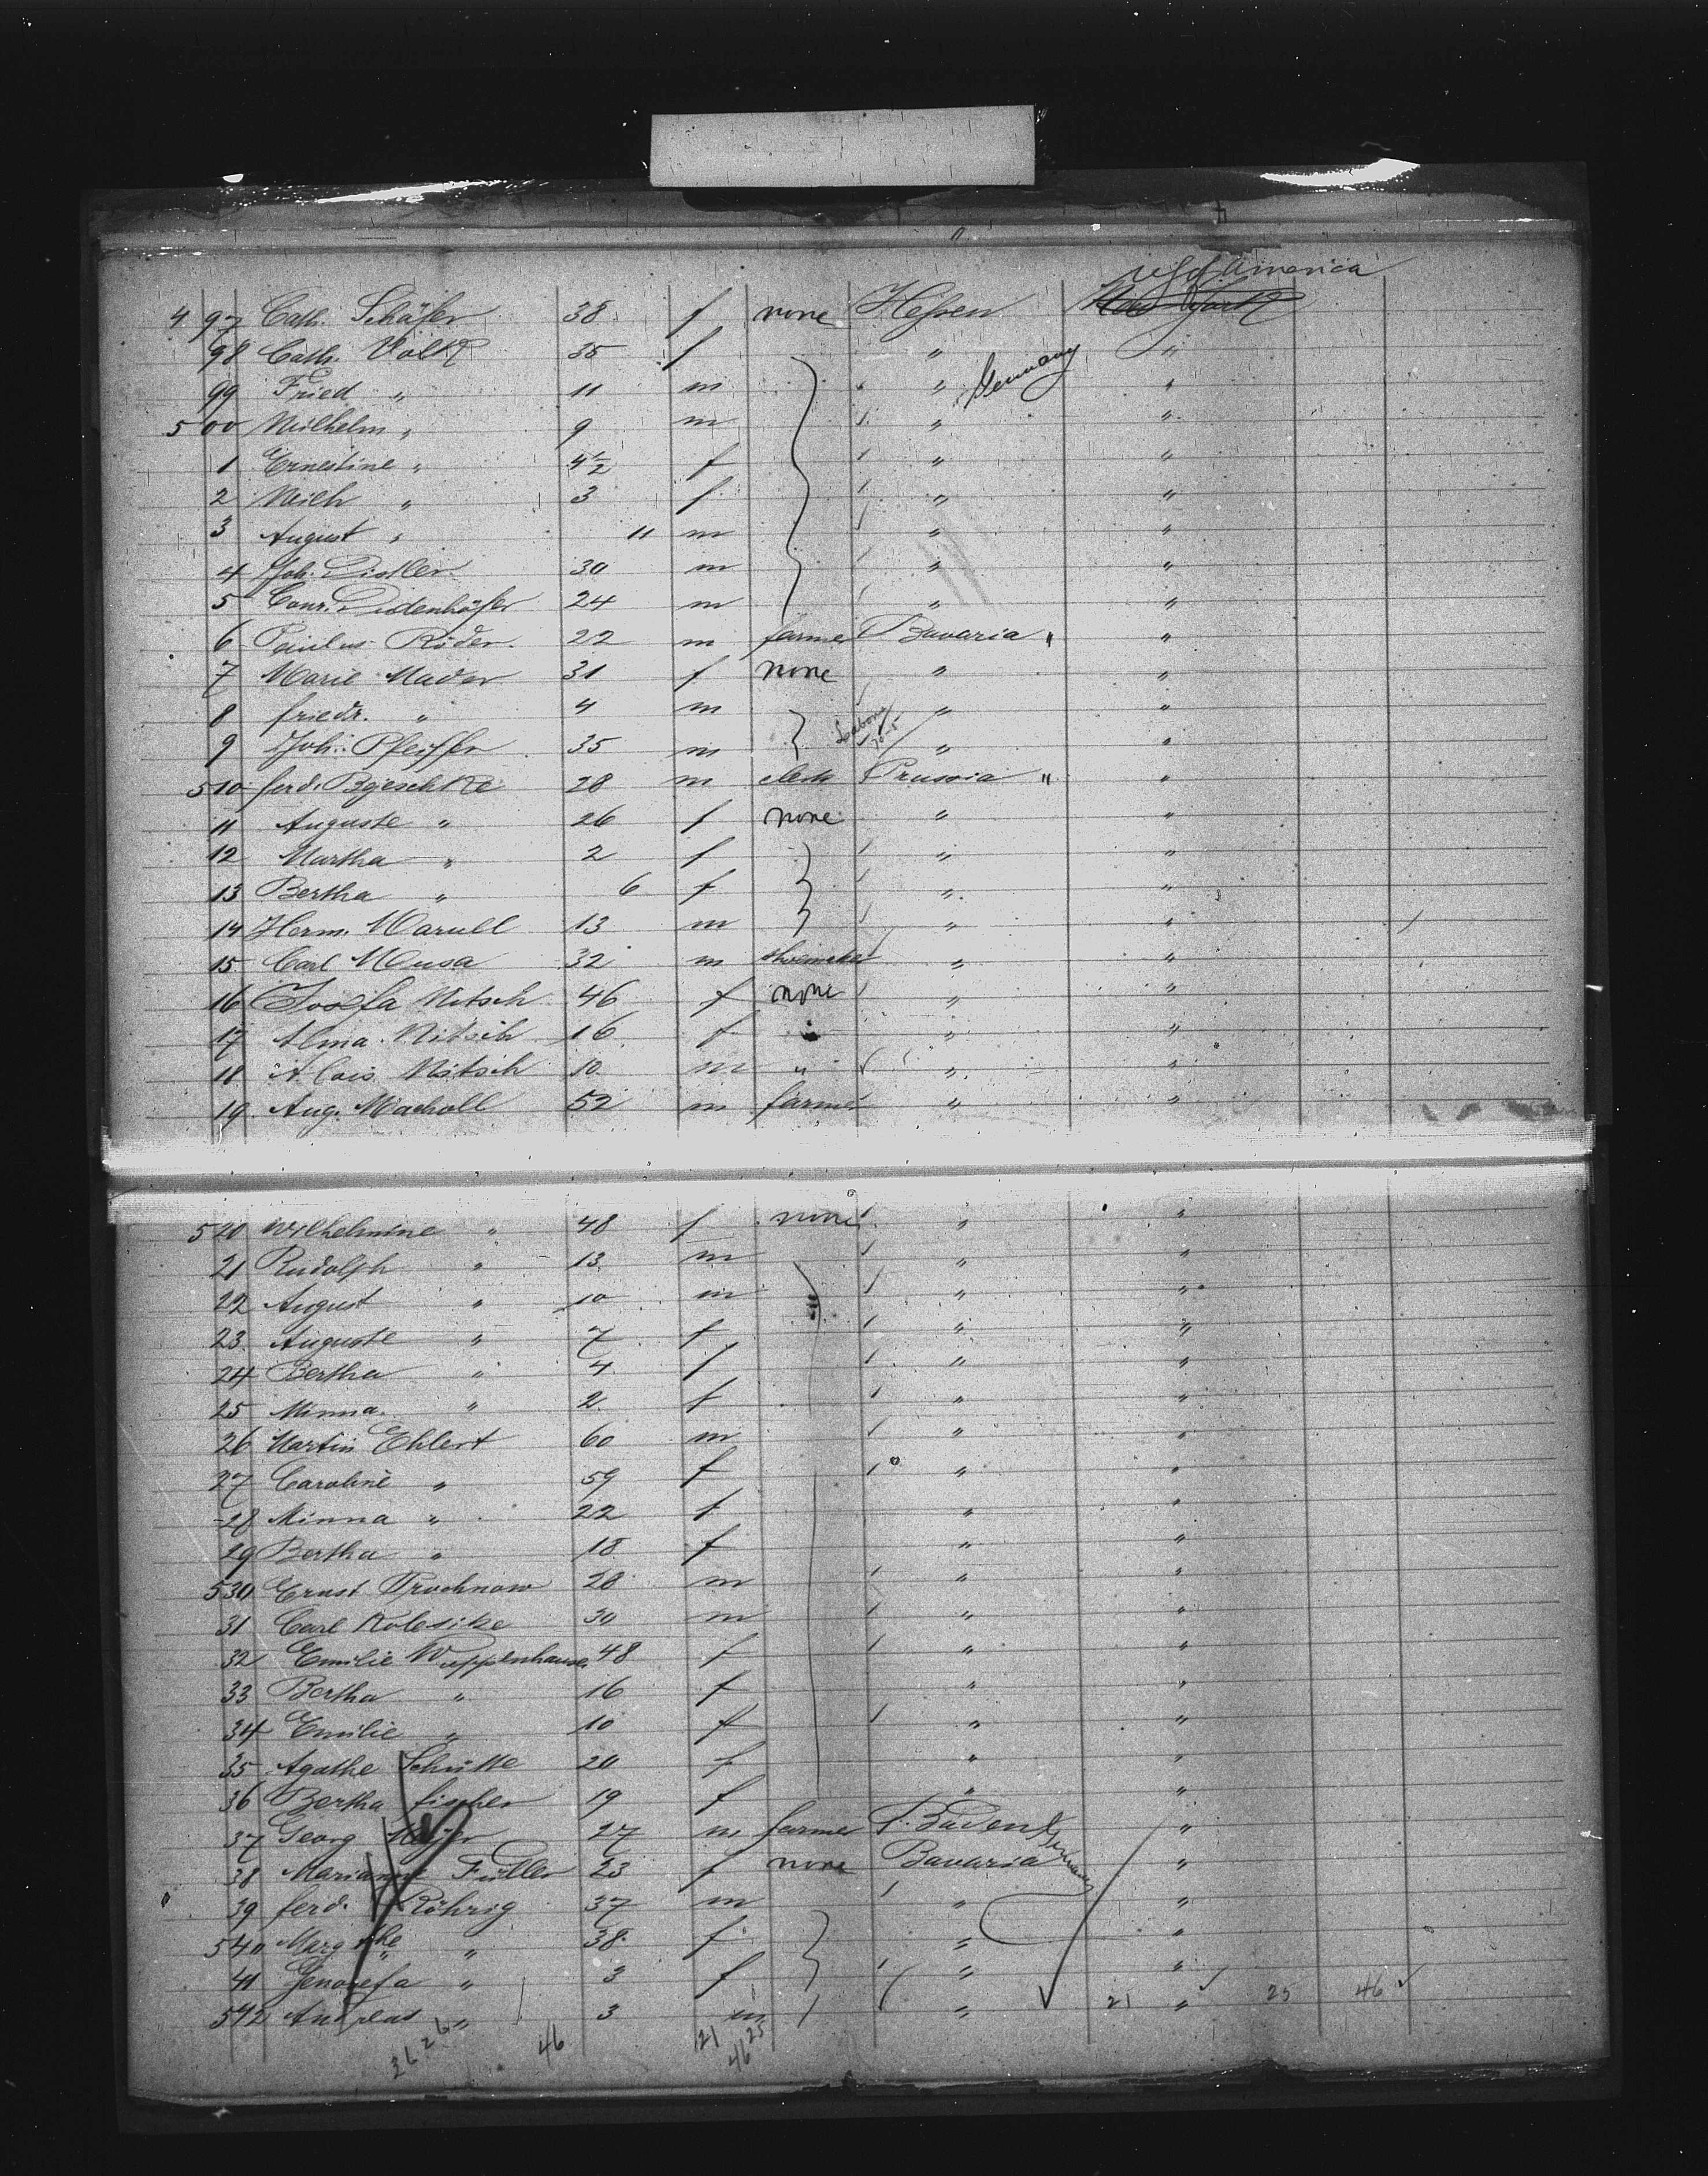 U S of America
4 97 Cath. Schäfer 38 f none Hessen New York
98 Cath. Volk 35 f " "
99 Fried " 11 m " Germany "
5 00 Wilhelm " 9 m " "
1 Ernestine " 4½ f " "
2 Wilh " 3 f " "
3 August " 11 m " "
4 Joh. Distler 30 m " "
5 Conr. Didenhöfer 24 m " "
6 Paulus Röder 22 m farmer Bavaria " "
7 Marie Mader 31 f none " "
8 friedr. " 4 m " "
9 Joh. Pfeiffer 35 m " "
510 ferd. 28 m clerk Prussia " "
11 Auguste " 26 f none " "
12 Martha " 2 f " "
13 Bertha " 6 f " "
14 Herm. 13 m " "
15 Carl Musa 32 m shoemaker " "
16 Josefa Nitsch 46 f none " "
17 Alma Nitsch 16 f " " "
18 Alois Nitsch 10 m " " "
19 Aug. Macholl 52 m farmer " "
520 Wilhelmine " 48 f none " "
21 Rudolph " 13 m " "
22 August " 10 m " " "
23 Auguste " 7 f " "
24 Bertha " 4 f " "
25 Minna " 2 f " "
26 Martin Ehlert 60 m " "
27 Caroline " 59 f " "
28 Minna " 22 f " "
29 Bertha " 18 f " "
530 Ernst Prochnow 28 m " "
31 Carl Kolesike 30 m " "
32 Emilie Wuppenhauser 48 f " "
33 Bertha " 16 f " "
34 Emilie " 10 f " "
35 Agathe Schütte 20 f " "
36 Bertha fischer 19 f " "
37 Georg 27 m farmer Baden Germany "
38 Marianne Füller 23 f none Bavaria "
39 ferd. Röhrig 37 m " "
540 Marg " 38 f " "
41 Genovefa " 3 f " "
542 Andreas " 3 m " 21 " 25 46
26 46 21 25
36 46